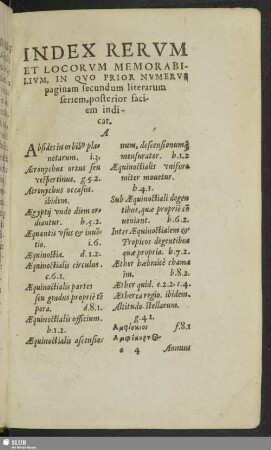 INDEX RERVM
ET LOCORVM MEMORABI-
LIVM, IN QVO PRIOR NVMERVS
paginam secundum literarum
seriem, posterior faci-
em indi-
cat.
A
Absides in orbibꝰ pla-
netarum. i.3.
Acronychus ortus seu
vespertinus, g.5.2.
Acronychus occasus.
ibidem.
Ægyptij vnde diem or-
diantur. h.5.2.
Æquantis vsus & inuē-
tio. i.6.
Æquinoctia. d.1.2.
Æquinoctialis circulus.
c.6.1.
Æquinoctialis partes
seu gradus propriè tē
pora. d.8.1.
Æquinoctialis officium.
b.1.2.
Æquinoctialis ascensio
num, descensionum
mensurator. b.1.2
Æquinoctialis vnifor-
miter mouetur.
b.4.1.
Sub Æquinoctiali degen
tibus, quæ propriè cō
ueniant. b.6.2.
Inter Æquinoctialem &
Tropicos degentibus
quæ propria. b.7.2.
Æther hæbraicè chama
im. b.8.2.
Æther quid. c.2.2. c.4.
Ætherea regio. ibidem.
Altitudo stellarum.
g.4.1.
Αμφίσκιοι f.8.1
a 4 Annum
SLUB